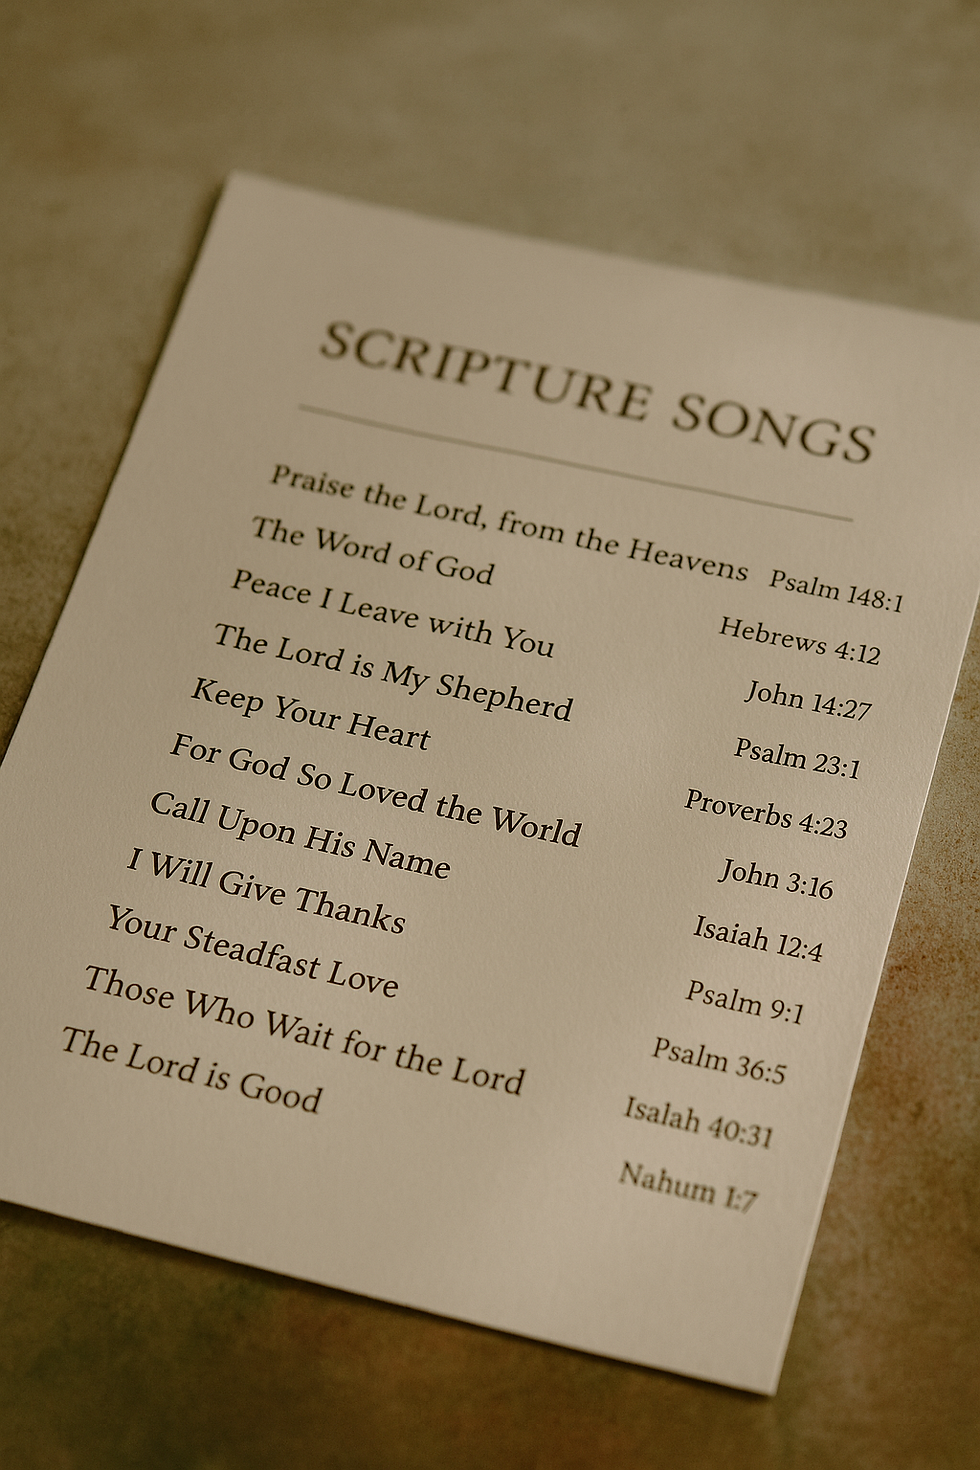 SCRIPTURE SONGS
Praise the Lord, from the Heavens Psalm 148:1
The Word of God Hebrews 4:12
Peace I Leave with You John 14:27
The Lord is My Shepherd Psalm 23:1
Keep Your Heart Proverbs 4:23
For God So Loved the World John 3:16
Call Upon His Name Isaiah 12:4
I Will Give Thanks Psalm 9:1
Your Steadfast Love Psalm 36:5
Those Who Wait for the Lord Isalah 40:31
The Lord is Good Nahum I:7